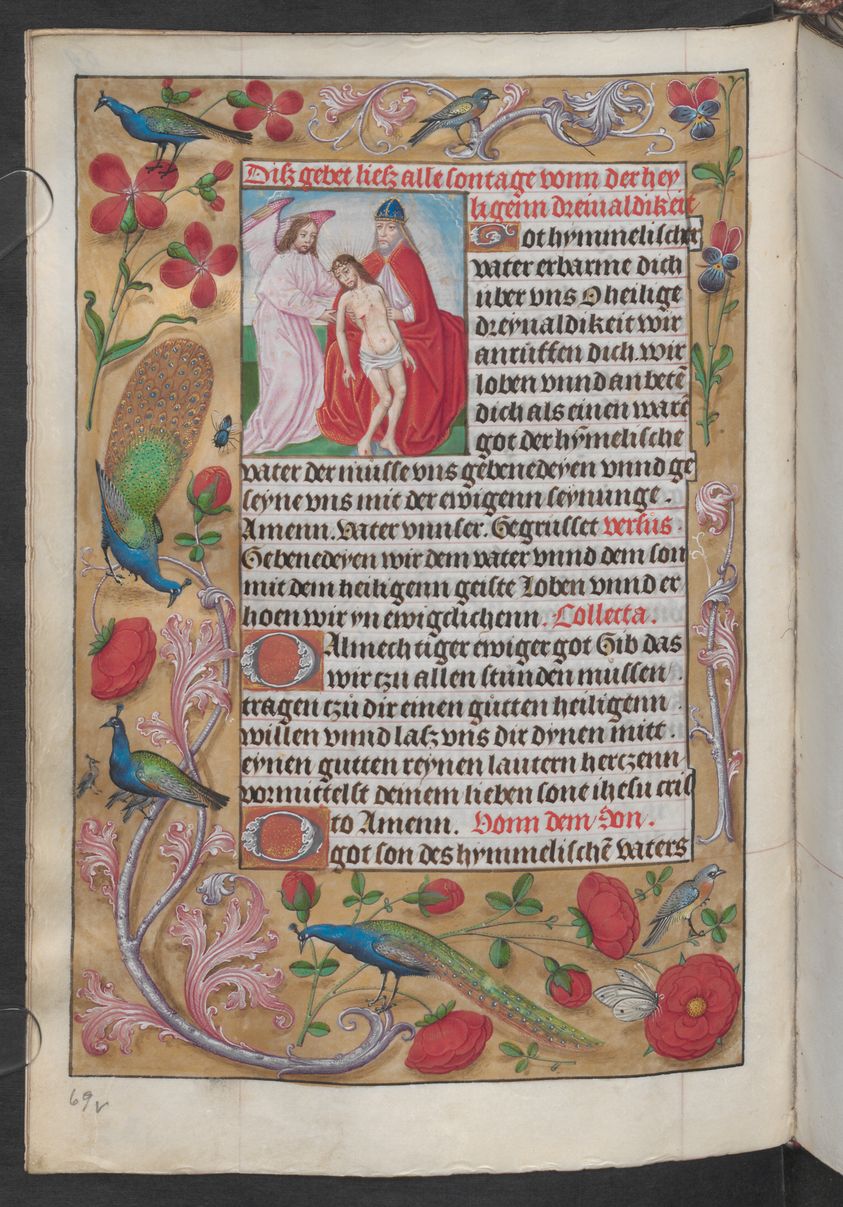 Disz gebet liesz alle sontage vonn der hey
ligenn dreiualdikeit
Got hymmelischer
vater erbarme dich
uber vns O heilige
dreyualdikeit wir
anruffen dich. wir
loben vnnd anbetē
dich als einen warē
got der hȳmelische
vater der müsse vns gebenedeyen vnnd ge
seyne vns mit der ewigenn seynunge.
Amenn. Vater vnnser. Gegrusset versus.
Gebenedeyen wir dem vater vnnd dem son
mit dem heiligenn geiste Loben vnnd er
hoen wir yn ewigclichenn. Collecta.
O Almechtiger ewiger got Gib das
wir tzu allen stunden mussen
tragen tzů dir einen gůtten heiligenn
willen vnnd lasz vns dir dynen mitt
eynen gutten reynen lautern hertzenn
vormittelst deinem lieben sone ihesu cris
to Amenn. Vonn dem Son.
O got son des hymmelischē vaters
69v